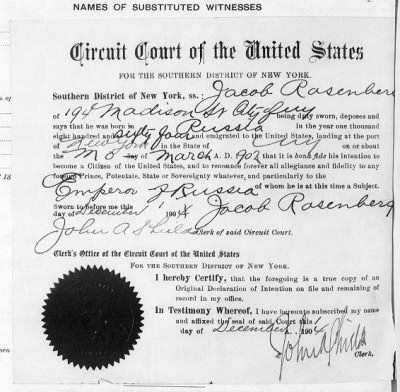 NAMES OF SUBSTITUTED WITNESSES
Circuit Court of the United States
FOR THE SOUTHERN DISTRICT OF NEW YORK.
Southern District of New York, ss: Jacob Rosenberg
of 194 Madison St City being duly sworn, deposes and
says that he was born in Russia in the year one thousand
eight hundred and sixty four and emigrated to the United States, landing at the port
of New York in the State of on or about
the day of March A. D. 902 that it is bona fide his intention to
become a Citizen of the United States, and to renounce forever all allegiance and fidelity to any
foreign Prince, Potentate, State or Sovereignty whatever, and particularly to the
Emperor of Russia of whom he is at this time a Subject.
Sworn to before me this
day of December 1 1904 Jacob Rosenberg
John A Shields Clerk of said Circuit Court.
Clerk's Office of the Circuit Court of the United States
FOR THE SOUTHERN DISTRICT OF NEW YORK.
I hereby Certify, that the foregoing is a true copy of an
Original Declaration of Intention on file and remaining of
record in my office.
In Testimony Whereof, I have hereunto subscribed my name
and affixed the seal of said Court this 1
day of December 1904
John A Shields
Clerk.